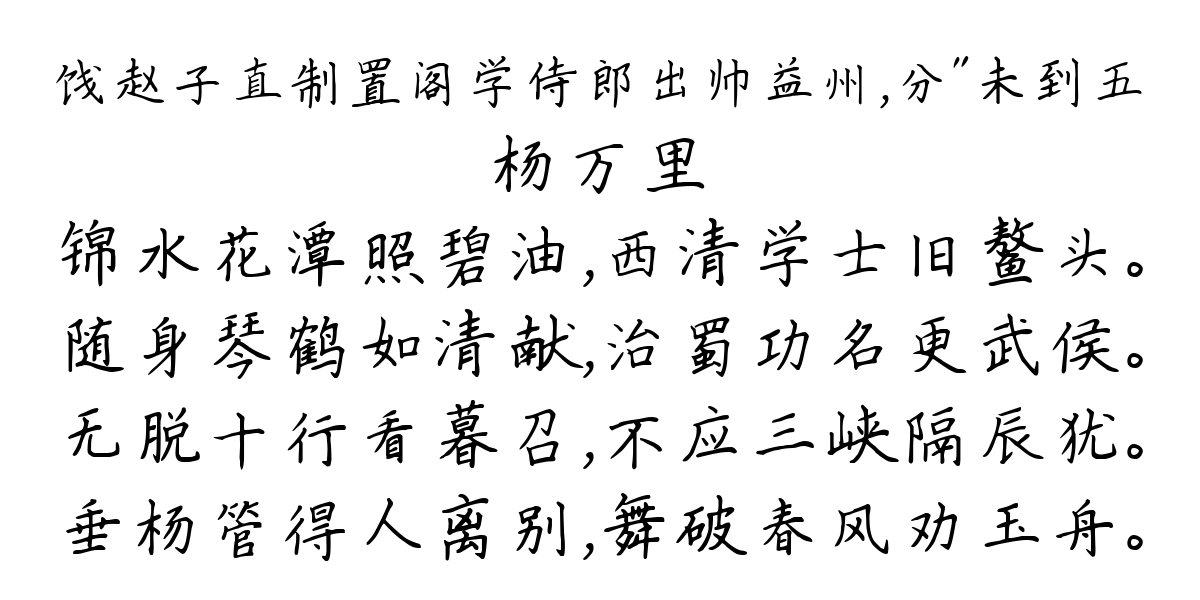 饯赵子直制置阁学侍郎出帅益州,分"未到五
杨万里
锦水花潭照碧油,西清学士旧鳌头。
随身琴鹤如清献,治蜀功名更武侯。
无脱十行看暮召,不应三峡隔辰犹。
垂杨管得人离别,舞破春风劝玉舟。